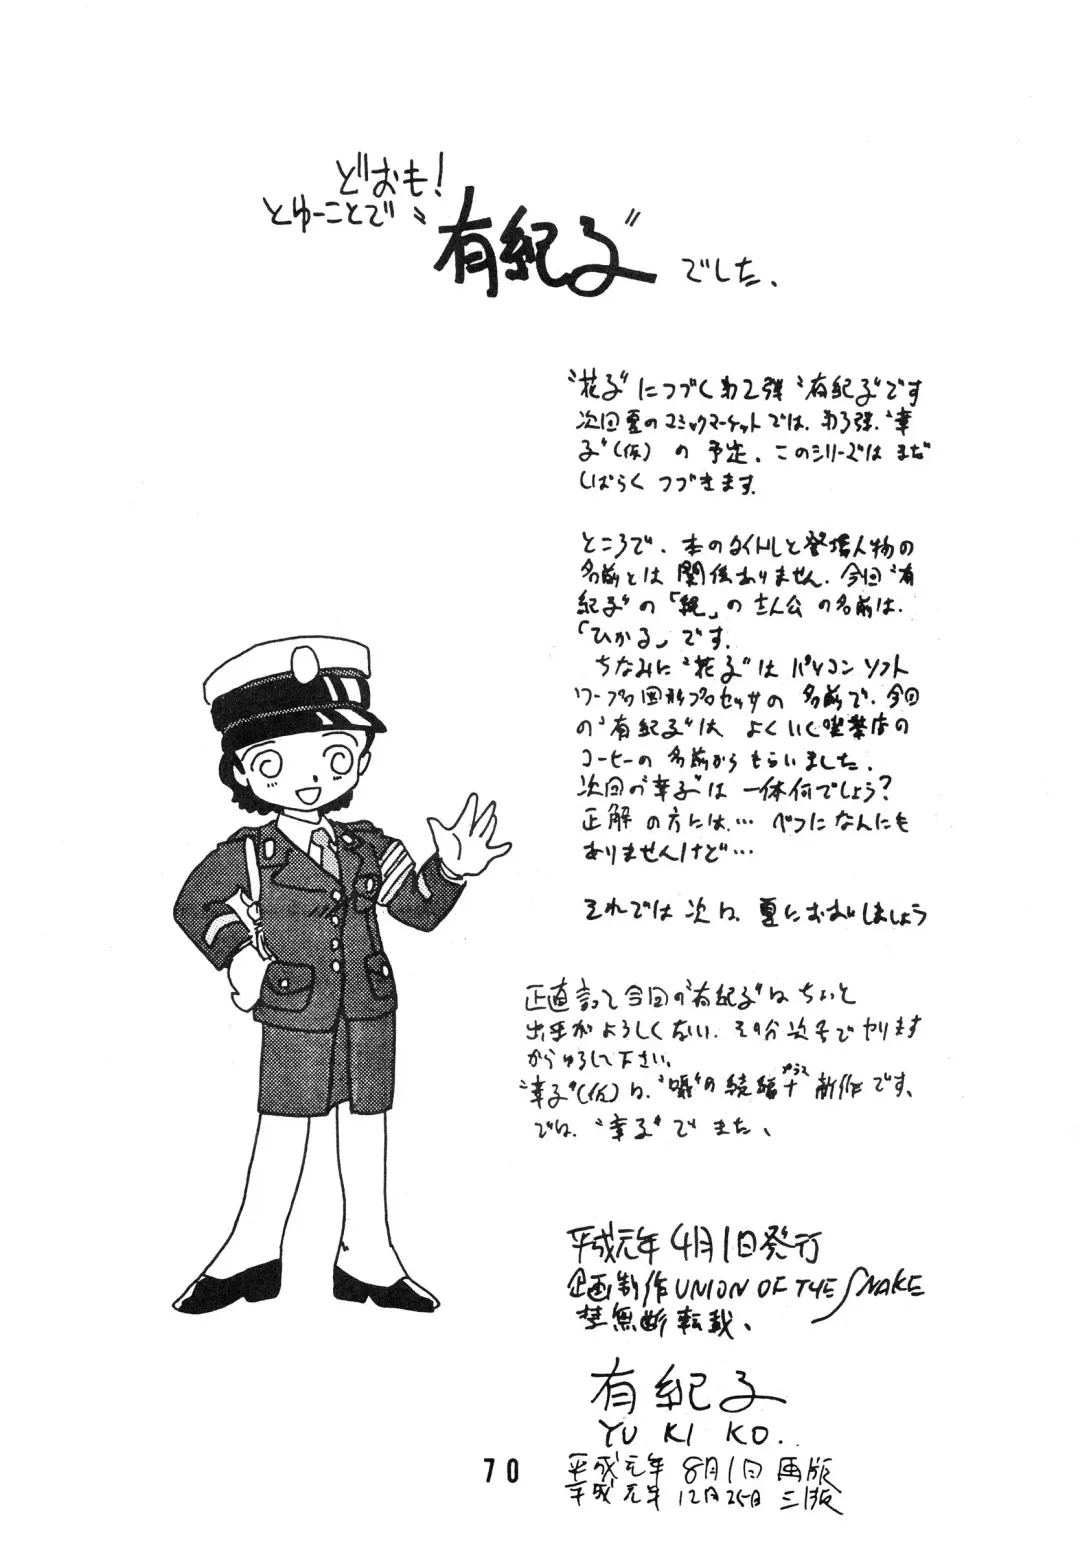 どおも！
とゆーことで〝有紀子〟でした、
〝花子〟につづく第2弾〝有紀子〟です
次回夏のコミックマーケットでは、第3弾、〝幸
子〟(仮) の 予定、このシリーズは まだ
しばらく つづきます。
ところで、本のタイトルと登場人物の
名前とは 関係ありません、今回〝有
紀子〟の「縄」の主人公 の名前は、
「ひかる」です。
ちなみに〝花子〟は パソコン ソフト
ワープロ図形プロセッサの 名前で、今回
の〝有紀子〟は よくいく喫茶店の
コーヒーの 名前から もらいました、
次回の〝幸子〟は 一体何でしょう?
正解 の方には… べつになんにも
ありませんけど…
それでは 次は、夏におあいしましょう
正直言って今回の〝有紀子〟は ちょいと
出来がよろしくない、その分次号でヤリます
からゆるして下さい、
〝幸子〟(仮)は、の続編+プラス 新作です、
では、〝幸子〟で また、
平成元年 4月1日発行
企画制作 UNION OF THE SNAKE
禁無断転載、
有紀子
YU KI KO.
平成元年 8月1日 再版
平成元年 12月25日 三版
70